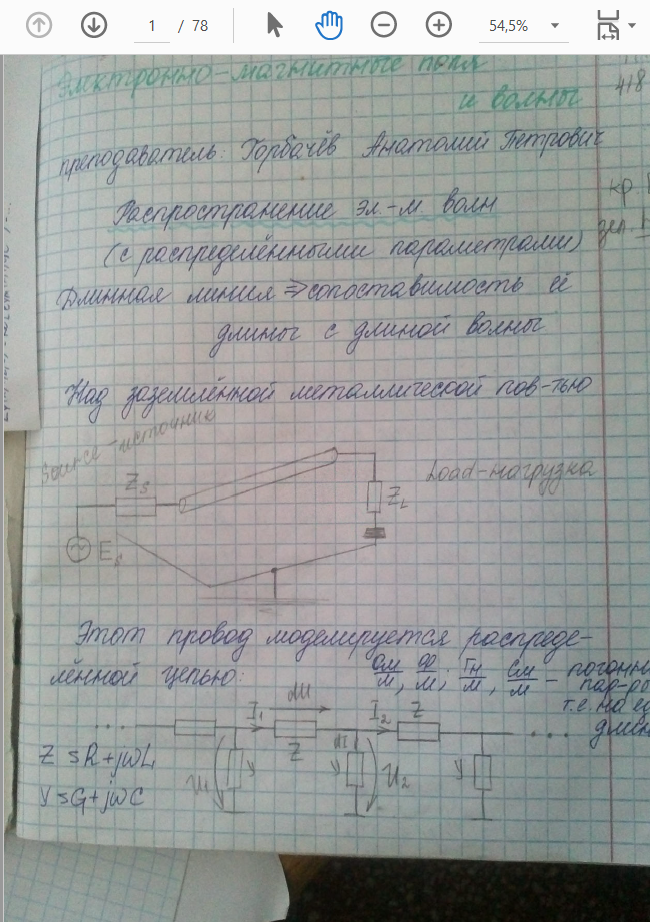 1 / 78 54,5%
Электронно-магнитные поля
и волны
418
преподаватель: Горбачёв Анатолий Петрович
кр
зел.
Распространение эл.-м. волн
(с распределёнными параметрами)
Длинная линия ⇒ сопоставимость её
длины с длиной волны
Над заземлённой металлической пов-тью
Source-источник
Load-нагрузка
Zs
ZL
E
Этот провод моделируется распреде-
лённой цепью:
Ом/м, Ф/м; Гн/м, См/м - погонны
пар-ры
т.е. на ед
длин
dU
I1 I2 Z
... Z dI ...
U1 y y U2 y
Z = R+jωL
Y = G+jωC